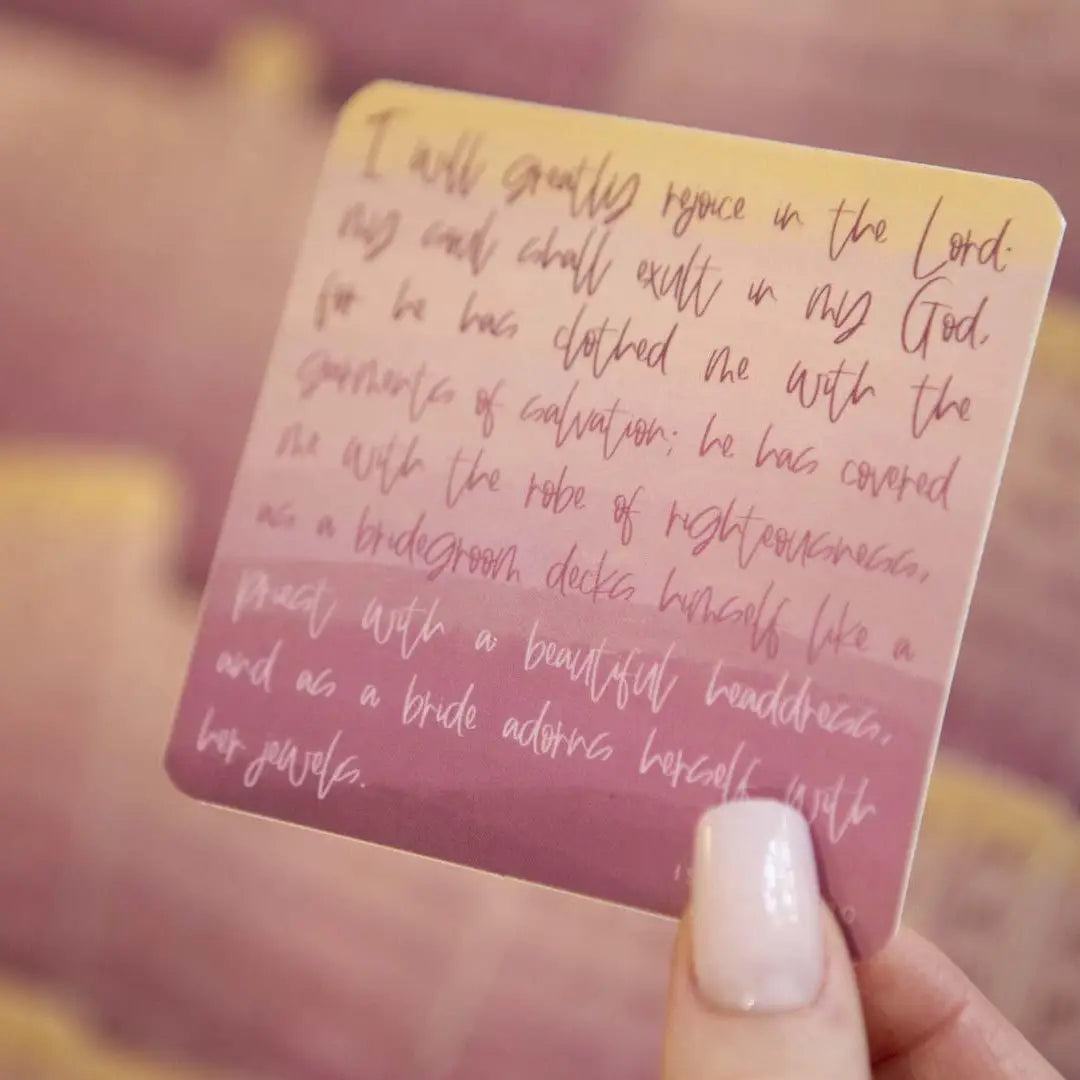 I will greatly rejoice in the Lord;
my soul shall exult in my God,
for he has clothed me with the
garments of salvation; he has covered
me with the robe of righteousness,
as a bridegroom decks himself like a
priest with a beautiful headdress,
and as a bride adorns herself with
her jewels.